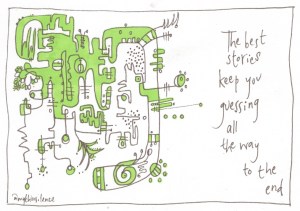 The best
stories
keep you
guessing
all
the way
to the
end